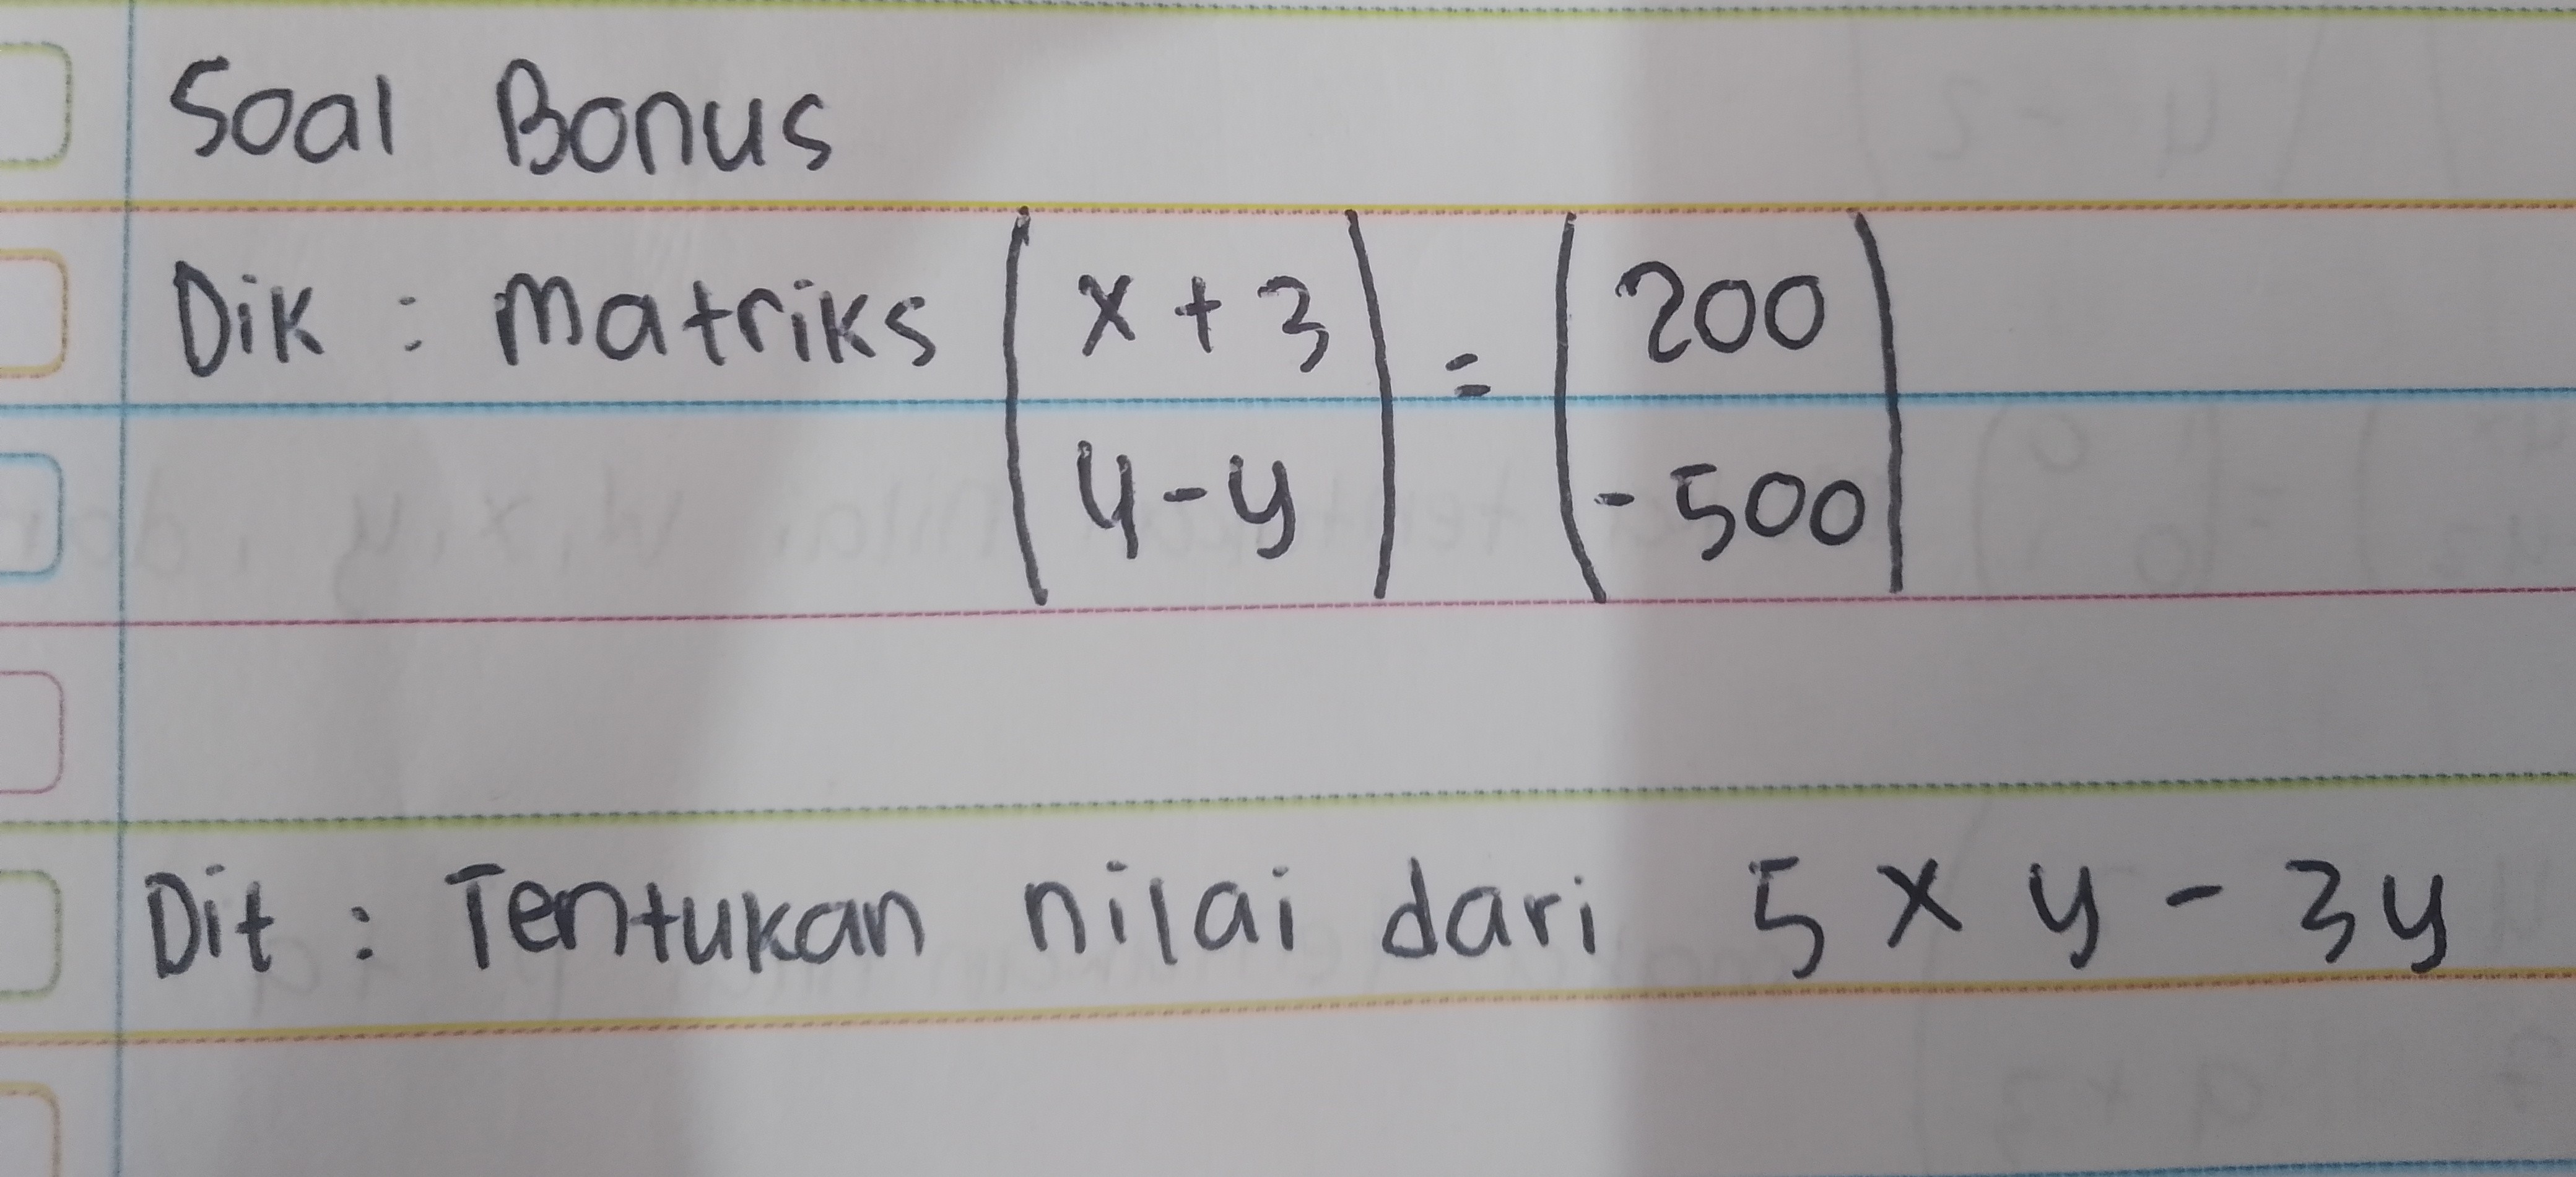 Soal Bonus
Dik : Matriks ( x + 3 ) = ( 200 )
( 4 - y ) ( - 500 )
Dit : Tentukan nilai dari 5 x y - 3y